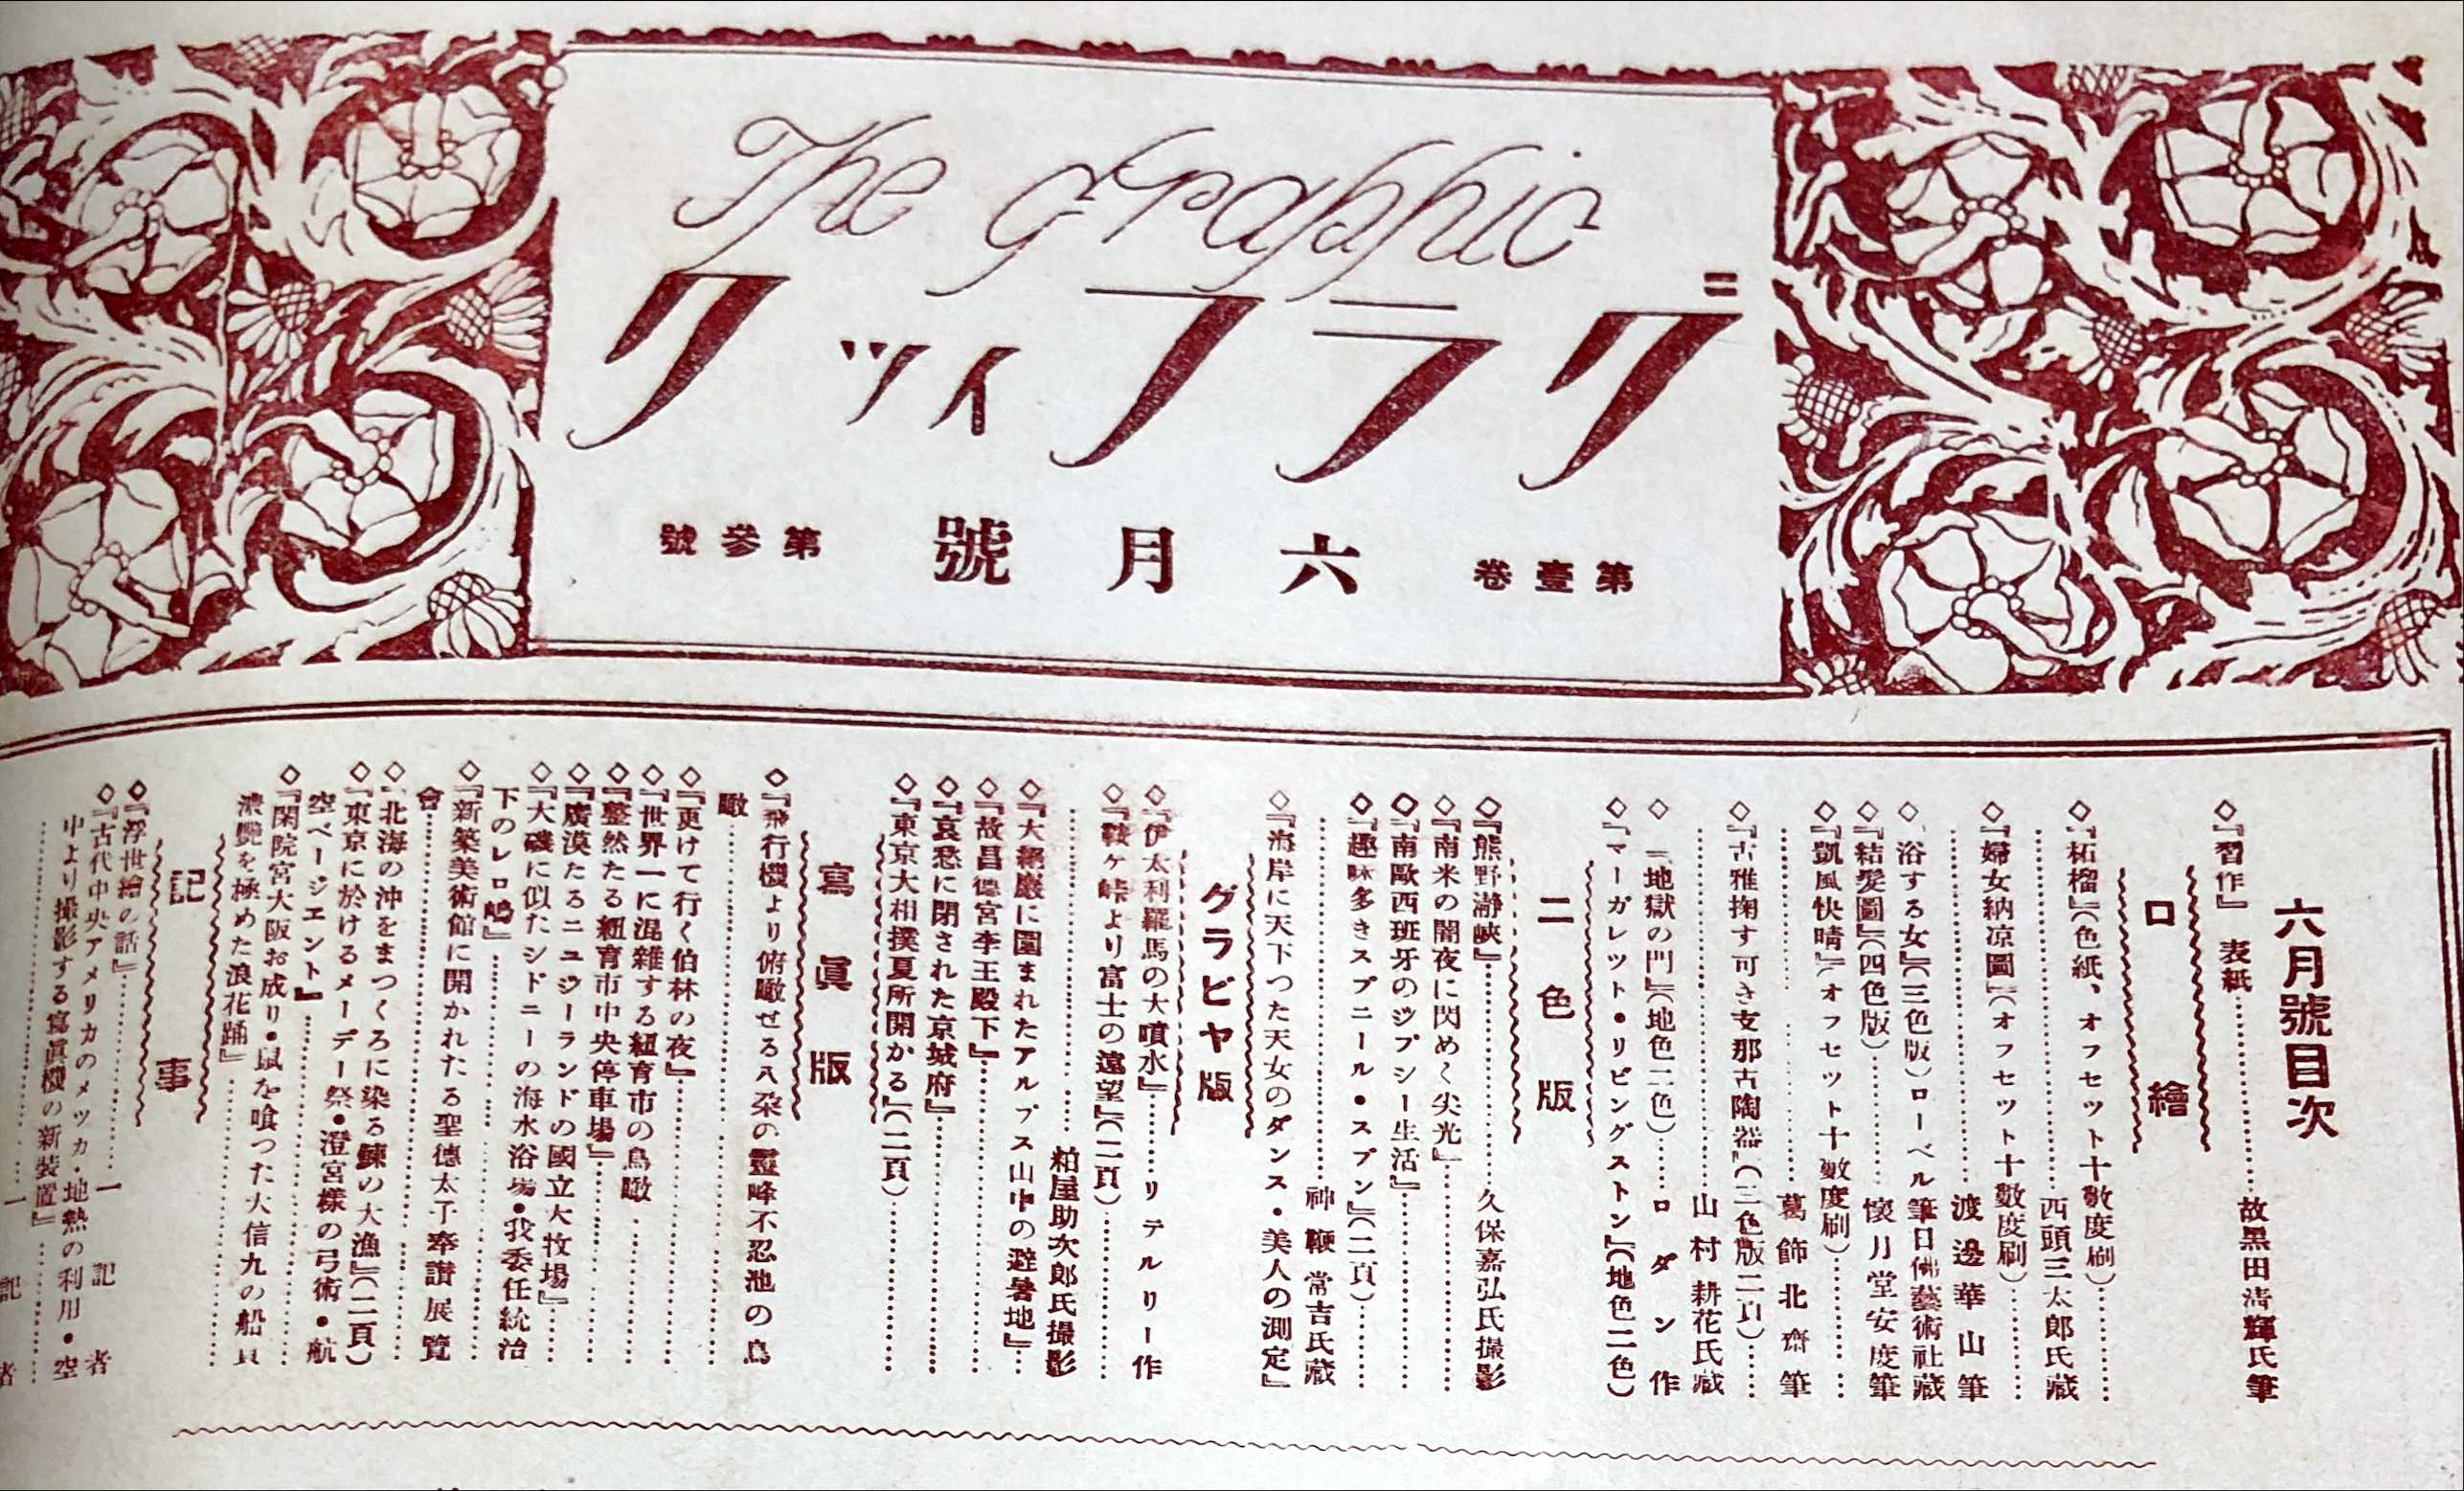 The Graphic
グラフイツク
第壹卷 六月號 第參號
六月號目次
◇『習作』 表紙……故黒田清輝氏筆
口繪
◇『柘榴』(色紙、オフセツト十數度刷)……
……西頭三太郎氏藏
◇『婦女納凉圖』(オフセツト十數度刷)……
……渡邊華山筆
◇『浴する女』(三色版)ローベル筆日佛藝術社藏
◇『結髮圖』(四色版)……懷月堂安度筆
◇『凱風快晴』(オフセツト十數度刷)……
……葛飾北齋筆
◇『古雅掬す可き支那古陶器』(三色版二頁)……
……山村耕花氏藏
◇『地獄の門』(地色二色)……ロダン作
◇『マーガレツト・リビングストン』(地色二色)
二色版
◇『熊野瀞峽』……久保嘉弘氏撮影
◇『南米の闇夜に閃めく尖光』……
◇『南歐西班牙のジプシー生活』……
◇『趣味多きスプニール・スプン』(二頁)……
……神鞭常吉氏藏
◇『海岸に天下つた天女のダンス・美人の測定』
グラビヤ版
◇『伊太利羅馬の大噴水』……リテルリー作
◇『鞍ケ峠より富士の遠望』(二頁)……
……粕屋助次郎氏撮影
◇『大絕巖に圍まれたアルプス山中の避暑地』…
◇『故昌德宮李王殿下』……
◇『哀愁に閉された京城府』……
◇『東京大相撲夏所開かる』(二頁)……
寫眞版
◇『飛行機より俯瞰せる八朶の靈峰不忍池の鳥
瞰……
◇『更けて行く伯林の夜』……
◇『世界一に混雜する紐育市の鳥瞰……
◇『整然たる紐育市中央停車場』……
◇『廣漠たるニユジーランドの國立大牧場』…
◇『大磯に似たシドニーの海水浴場・我委任統治
下のレロ嶋』……
◇『新築美術館に開かれたる聖德太子奉讃展覽
會……
◇『北海の沖をまつくろに染る鰊の大漁』(二頁)
◇『東京に於けるメーデー祭・澄宮樣の弓術・航
空ページエント』……
◇『閑院宮大阪お成り・鼠を喰つた大信九の船員
濃艷を極めた浪花踊』……
記事
◇『浮世繪の話』……一記者
◇『古代中央アメリカのメツカ・地熱の利用・空
中より撮影する寫眞機の新裝置』……
……一記者